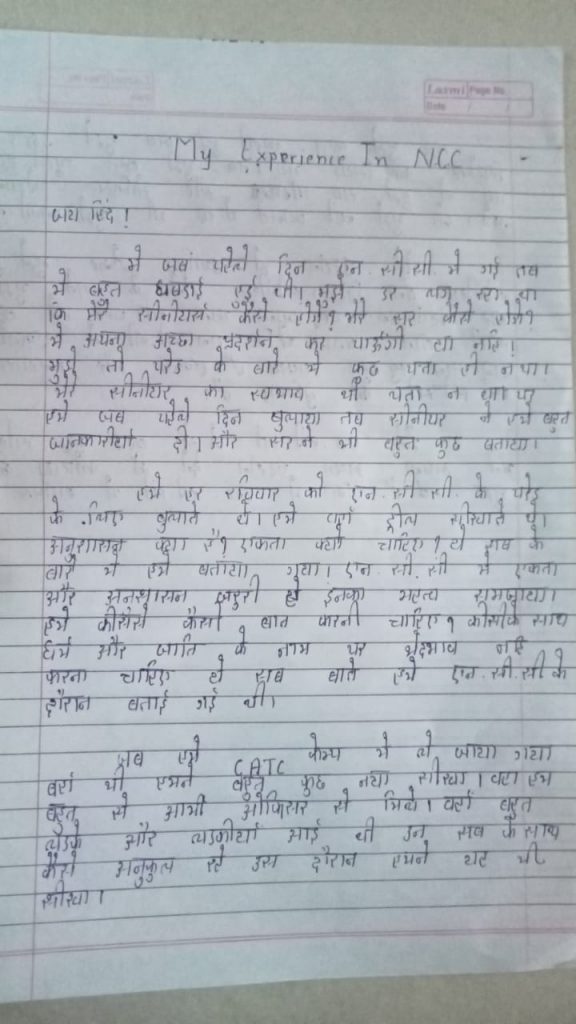 Laxmi Page No.
Date / /
My Experience In NCC
जय हिंद!
मे जब पहेले दिन एन.सी.सी मे गई तब
मे बहुत घबडाई हुई थी। मुझे डर लग रहा था
कि मेरे सीनीयर्स कैसे होंगे? मेरे सर कैसे होंगे?
मे अपना अच्छा प्रदर्शन कर पाऊंगी या नहि!
मुझे तो परेड के बारे मे कुछ पता ही न था।
मेरे सीनीयर का स्वभाव भी पता न था पर
हमे जब पहेले दिन बुलाया तब सीनीयर ने हमे बहुत
जानकारीयां दी। और सर ने भी बहुत कुछ बताया।
हमे हर रविवार को एन.सी.सी. के परेड
के लिए बुलाते थे। हमे वहां ड्रील सीखाते थे।
अनुशासन क्या है? एकता क्यों चाहिए? ये सब के
बारे मे हमे बताया गया। एन.सी.सी मे एकता
और अनुशासन जरुरी है इनका महत्व समजाया।
हमे कीसीसे कैसी बात करनी चाहिए? कीसीके साथ
धर्म और जाति के नाम पर भेदभाव नहि
करना चाहिए ये सब बाते हमे एन.सी.सी के
दौरान बताई गई थी।
जब हमे CATC केम्प मे ले जाया गया
वहां भी हमने बहुत कुछ नया सीखा। वहा हम
बहुत से आर्मी ओफिसर से मिले। वहां बहुत
लडके और लडकीयां आई थी उन सब के साथ
कैसे अनुकुल रहे उस दौरान हमने यह भी
सीखा।